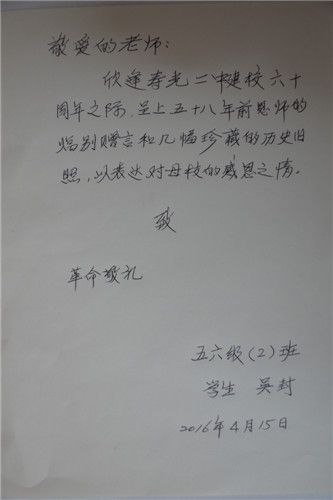 敬爱的老师：
欣逢寿光二中建校六十
周年之际，呈上五十八年前恩师的
临别赠言和几幅珍藏的历史旧
照，以表达对母校的感恩之情。
致
革命敬礼
五六级（2）班
学生 吴封
2016年4月15日